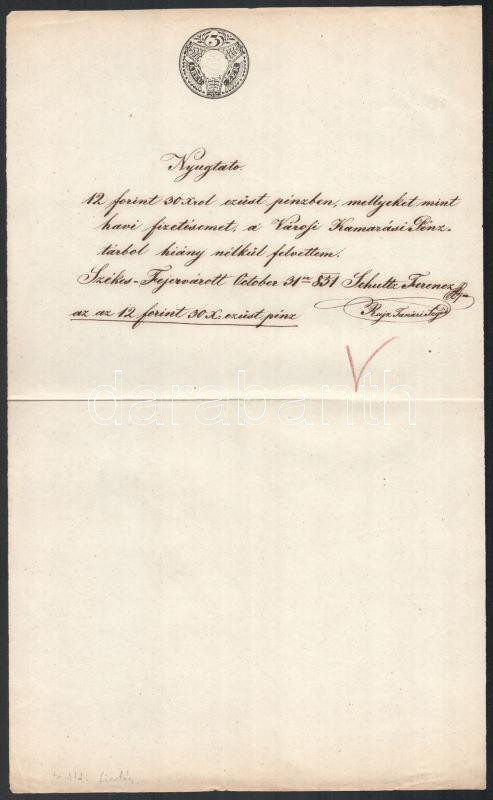 3
Nyugtato.
12 forint 30 X.rol ezüst pénzben, mellyeket mint
havi fizetésemet, a Városi Kamarási Pénz-
tárból hiány nélkül felvettem.
Székes-Fejervárott October 31-én 851 Schultz Ferencz
az az 12 forint 30 X: ezüst pénz
Rajz Tanári Segéd
darabanth